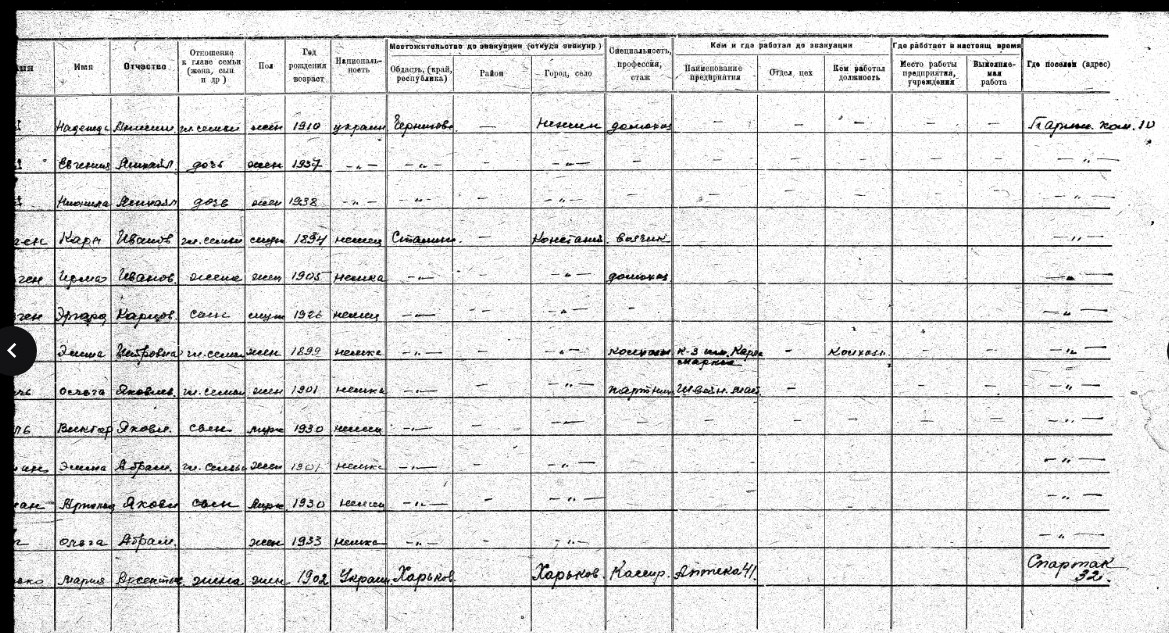 Местожительство до эвакуации (откуда эвакуир)
Кем и где работал до эвакуации
Где работает в настоящ время
Имя
Отчество
Отношение к главе семьи (жена, сын и др)
Пол
Год рождения возраст
Националь-ность
Область, (край, республика)
Район
Город, село
Специальность, профессия, стаж
Наименование предприятия
Отдел, цех
Кем работал должность
Место работы предприятия, учреждения
Выполняе-мая работа
Где поселен (адрес)
Надежда гл. семьи жен 1910 украин — Нежин домохоз — — — — — 10
Евгения Михайл дочь жен 1937 -„- -„- — -„- — — — — — — -„-
Михайл дочь жен 1938 -„- -„- — -„- — — — — — — -„-
ген Карл Иванов гл. семьи муж 1894 немец Сталин. — Констант. -„-
ген Ирма Иванов. жена жен 1905 немка -„- — -„- домохоз -„-
ген Карлов. сын муж 1926 немец -„- — -„- — -„-
Эмма Петровна гл. семьи жен 1899 немка -„- — -„- к-з им. Карла Маркса — колхозн. -„-
Ольга Яковлев. гл. семьи жен 1901 немка -„- — -„- — — — — -„-
Виктор Яковл. сын муж 1930 немец -„- — -„- — — — — — — -„-
Эмма Абрам. гл. семьи жен 1901 немка -„- — -„- -„-
ан Арнольд Яковл сын муж 1930 немец -„- — -„- -„-
Ольга Абрам. жен 1933 немка -„- -„- -„-
ко Мария Арсентьев жена жен 1902 Украин Харьков. Харьков. Кассир. Аптека 41. Спартак 32.